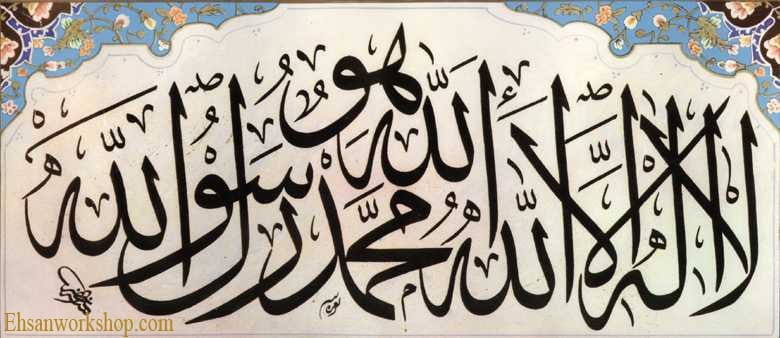 لا اله الا الله الله هو محمد رسول الله
Ehsanworkshop.com